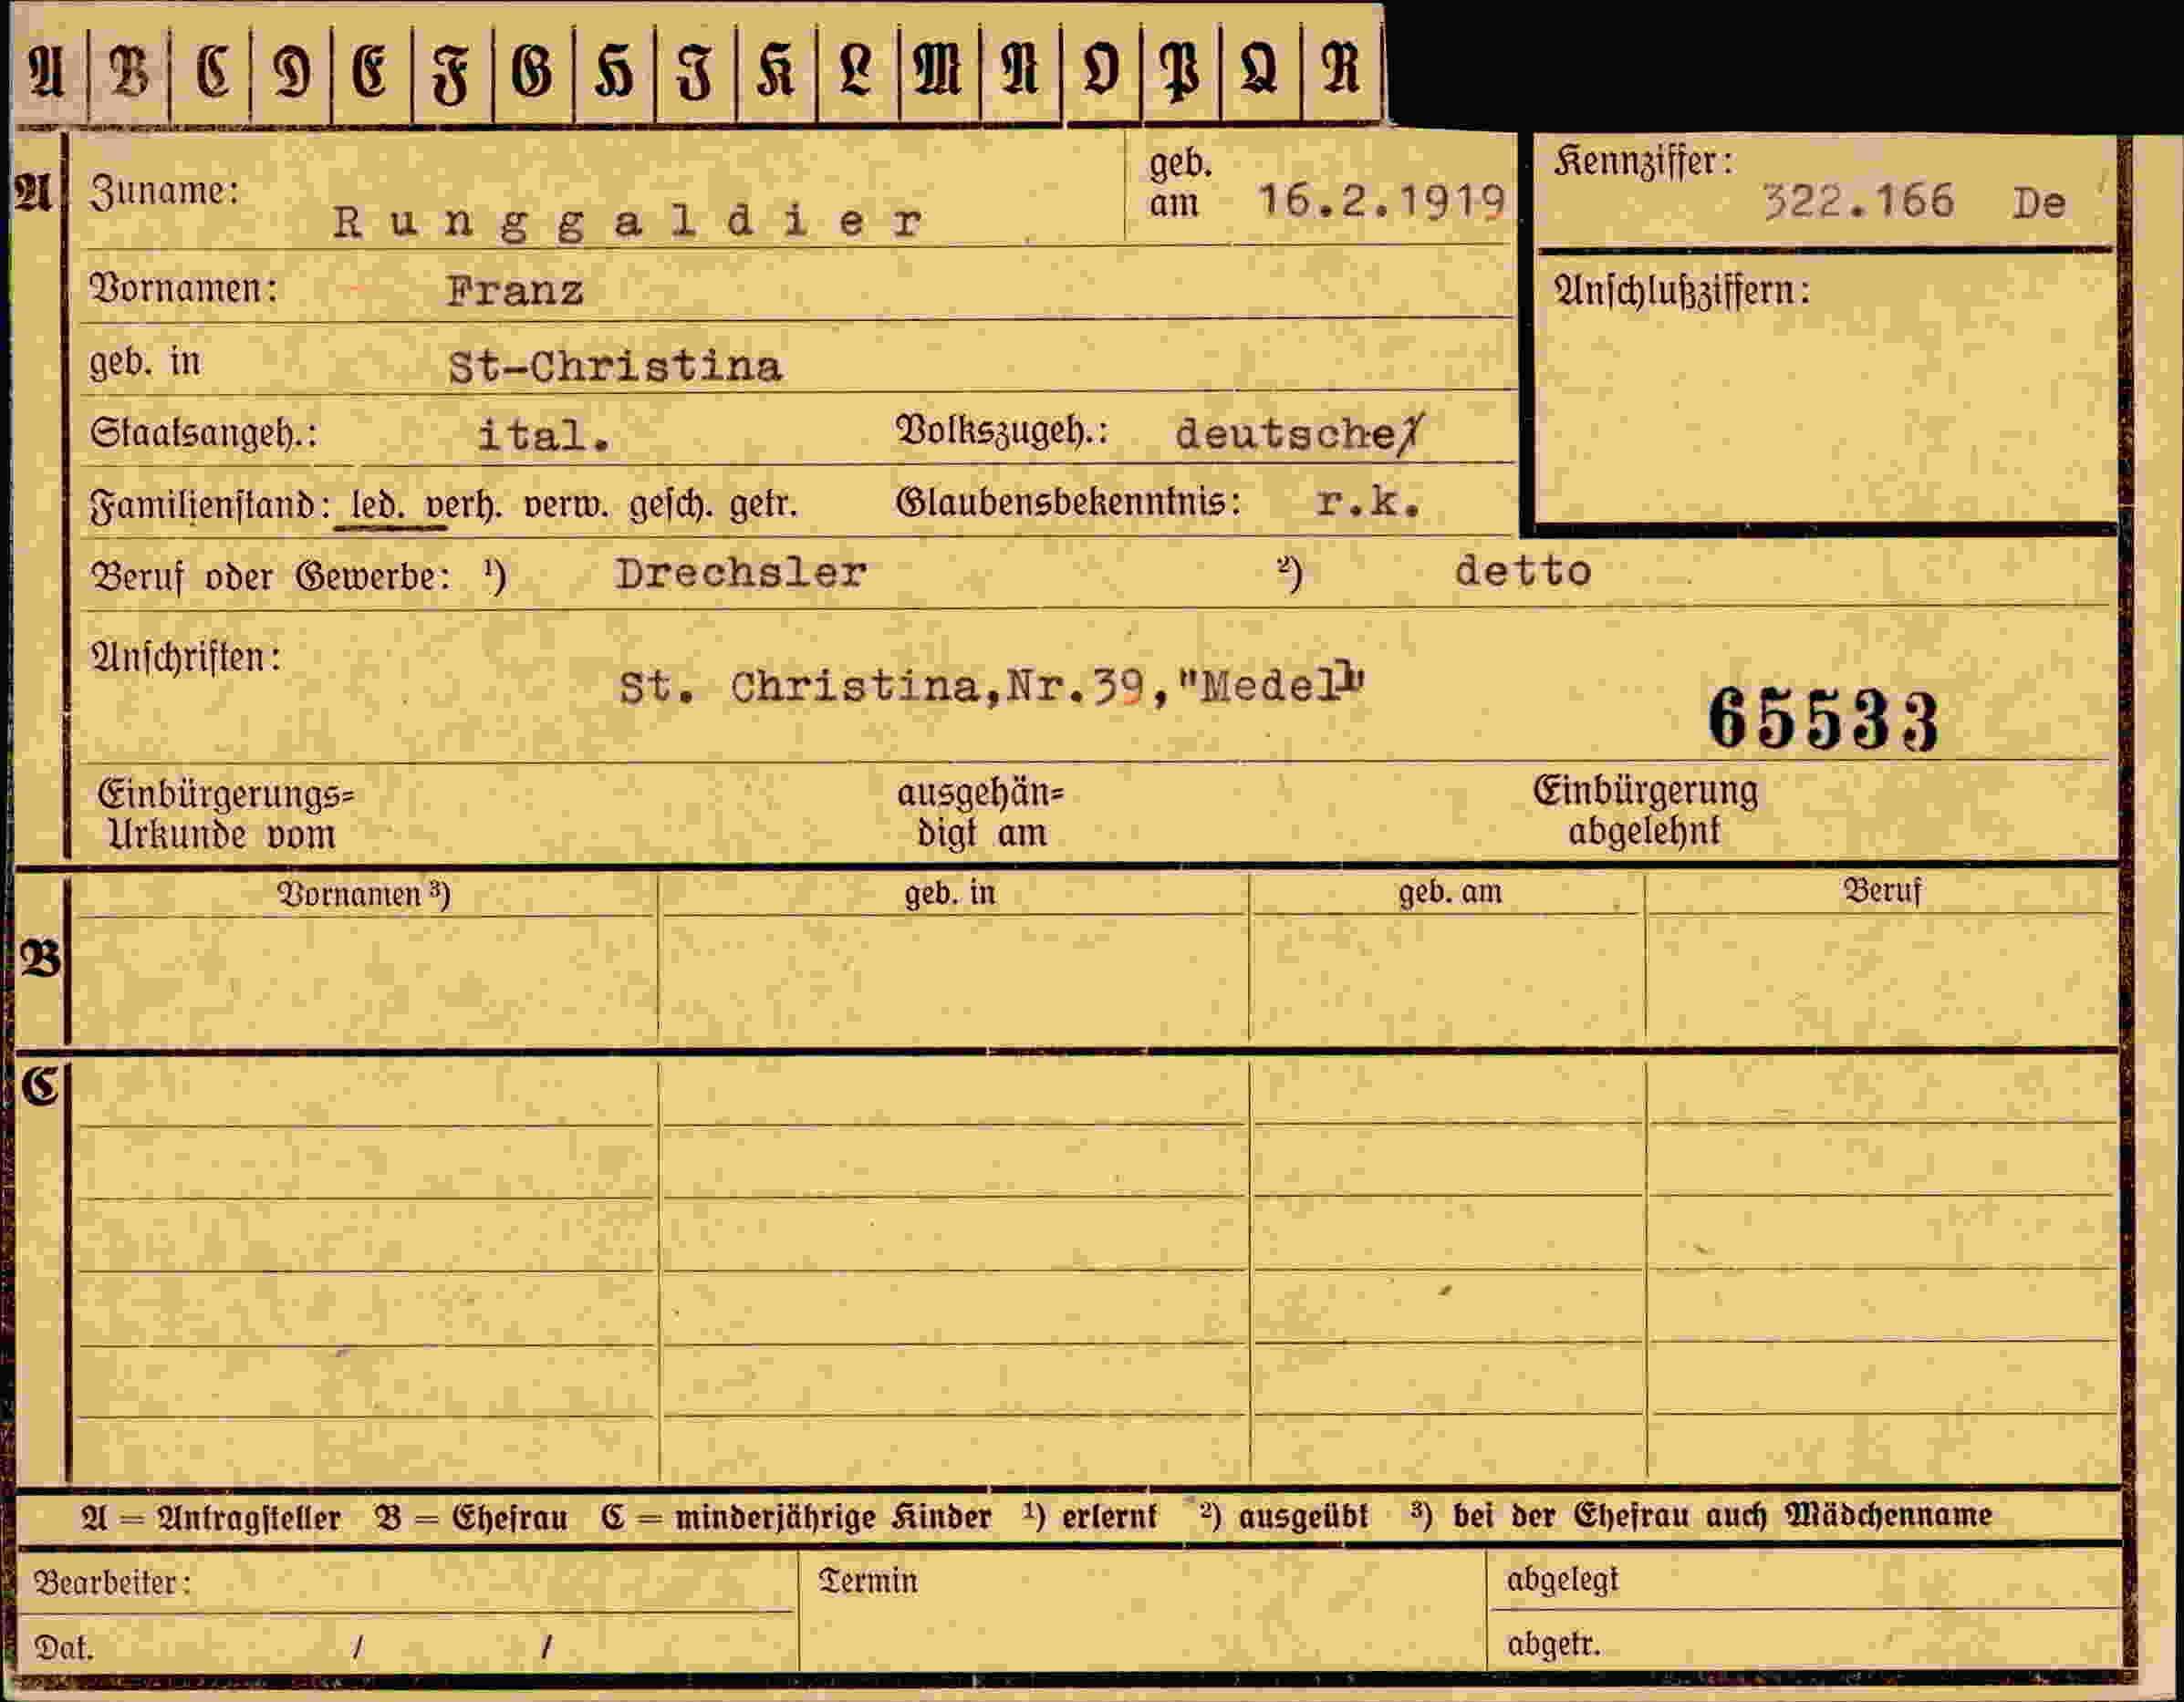 A B C D E F G H J K L M N O P Q R
A Zuname: Runggaldier geb. am 16.2.1919 Kennziffer: 322.166 De
Vornamen: Franz Anschlußziffern:
geb. in St-Christina
Staatsangeh.: ital. Volkszugeh.: deutsche
Familienstand: led. verh. verw. gesch. getr. Glaubensbekenntnis: r.k.
Beruf oder Gewerbe: ¹) Drechsler ²) detto
Anschriften: St. Christina,Nr.39,"Medel"
65533
Einbürgerungs= ausgehän= Einbürgerung
Urkunde vom digt am abgelehnt
Vornamen ³) geb. in geb. am Beruf
B
C
A = Antragsteller B = Ehefrau C = minderjährige Kinder ¹) erlernt ²) ausgeübt ³) bei der Ehefrau auch Mädchenname
Bearbeiter: Termin abgelegt
Dat. / / abgetr.